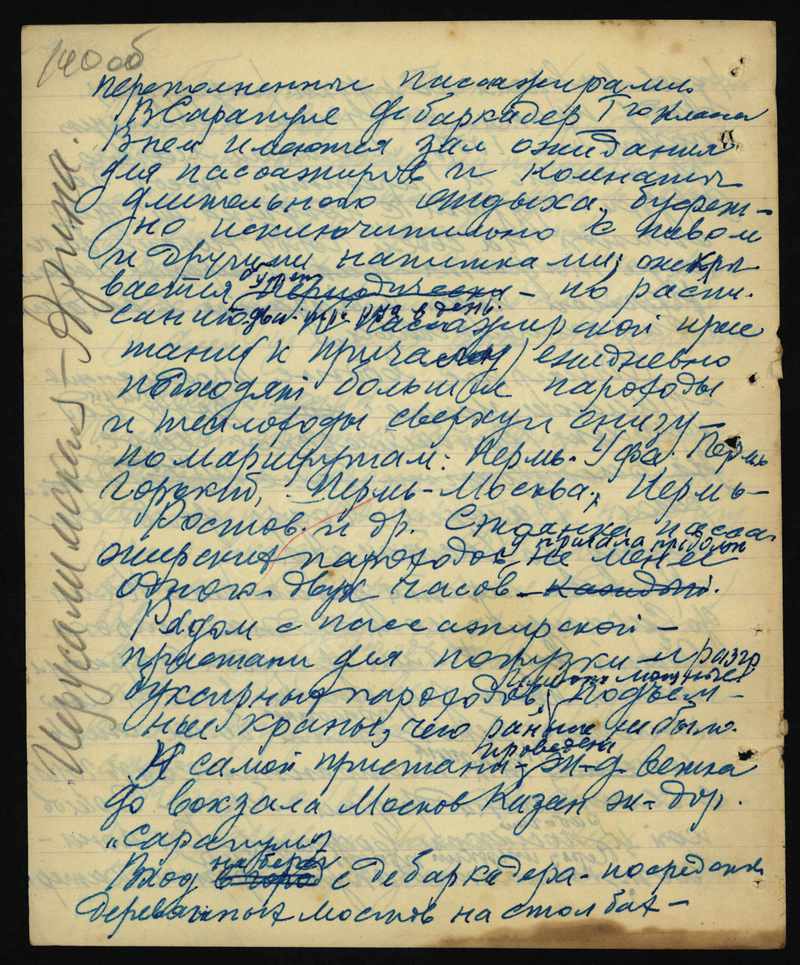 140 об
переполненные пассажирами.
В Сарапуле дебаркадер I го класса
В нем имеются зал ожидания
для пассажиров и комнаты
длительного отдыха, буфет –
но исключительно с пивом
и другими напитками; откры
вается утр периодически – по распи.
санию два, три раза в день.
К пассажирской прис
тани (к причалу) ежедневно
подходят большие пароходы
и теплоходы сверху и снизу –
по маршрутам: Пермь-Уфа. Пермь
Горький, Пермь-Москва; Пермь –
Ростов. и др. Стоянка пасса
жирских пароходов у причала не менее
одного-двух часов. каждый.
Рядом с пассажирской –
пристани для погрузки и разгр
буксирных пароходов, имеются мощные подъем –
ные краны, чего раньше не было.
К самой пристани – проведена ж-д. ветка
до вокзала Москов Казан ж-дор.
„Сарапул"
Вход в город на берег с дебаркадера – посредством
деревянных мостов на столбах –
Иерусалимская – Ядрина.